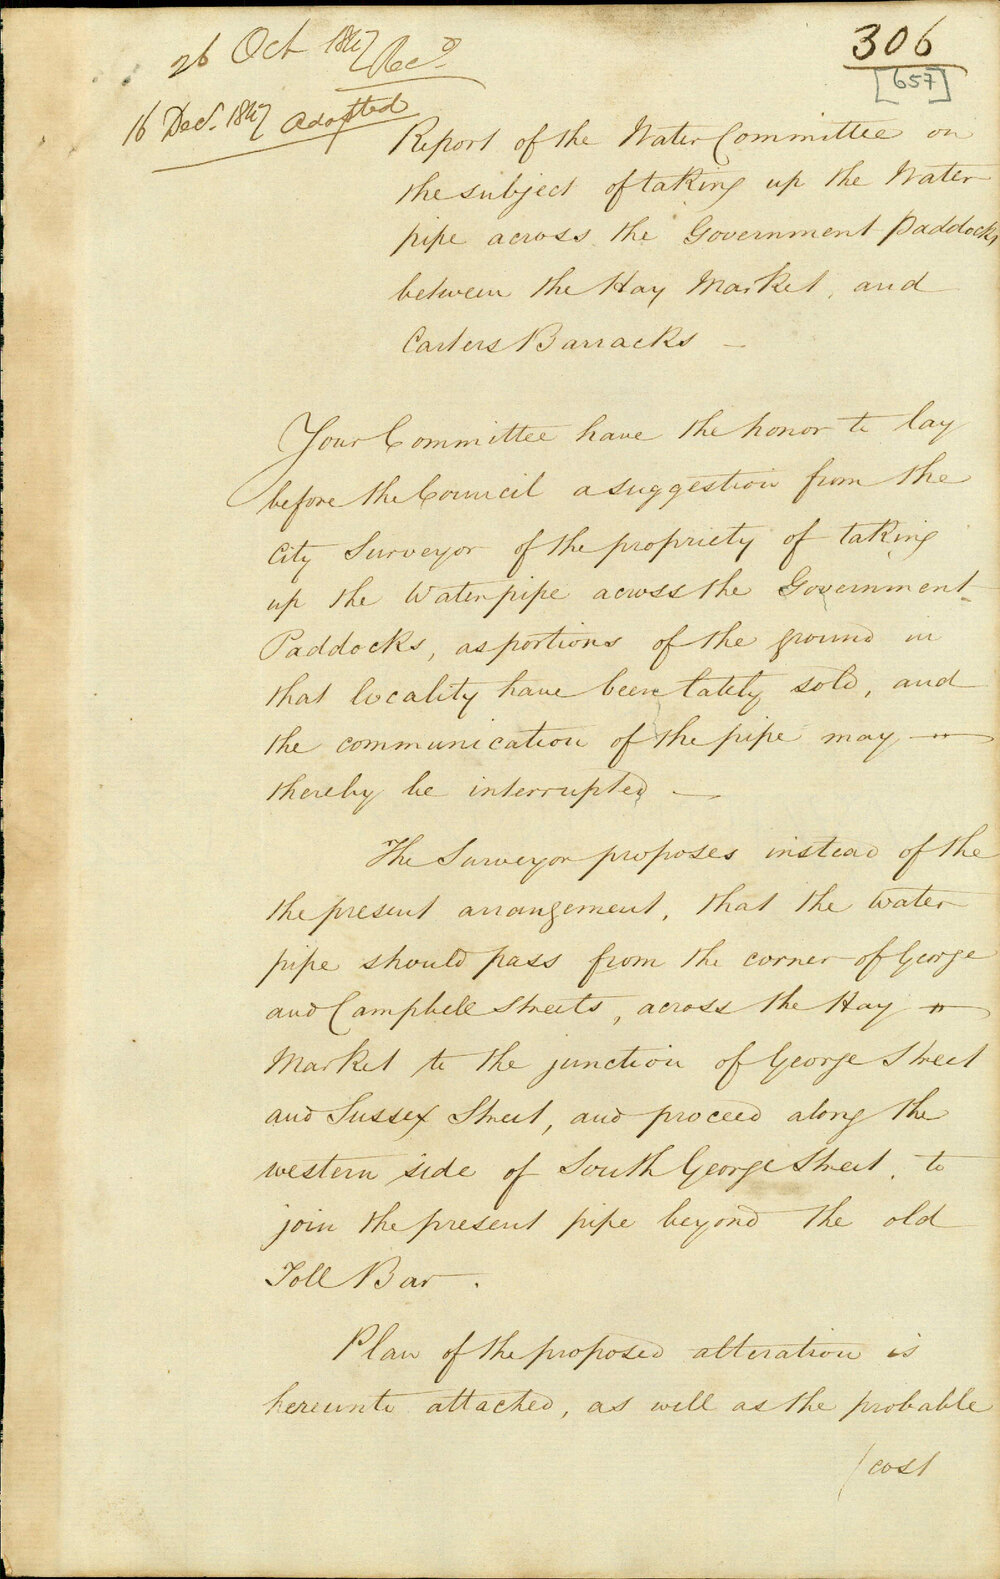 26 Oct 1847 Recd.
306
[657]
16 Dec. 1847 adopted
Report of the Water Committee on
the subject of taking up the Water
pipe across the Government Paddocks
between the Hay Market, and
Carters Barracks —
Your Committee have the honor to lay
before the Council a suggestion from the
City Surveyor of the propriety of taking
up the Water pipe across the Government
Paddocks, as portions of the ground in
that locality have been lately sold, and
the communication of the pipe may —"—
thereby be interrupted —
The Surveyor proposes instead of the
the present arrangement, that the Water
pipe should pass from the corner of George
and Campbell Streets, across the Hay —"—
Market to the junction of George Street
and Sussex Street, and proceed along the
western side of South George Street, to
join the present pipe beyond the old
Toll Bar.
Plan of the proposed alteration is
hereunto attached, as well as the probable
/cost